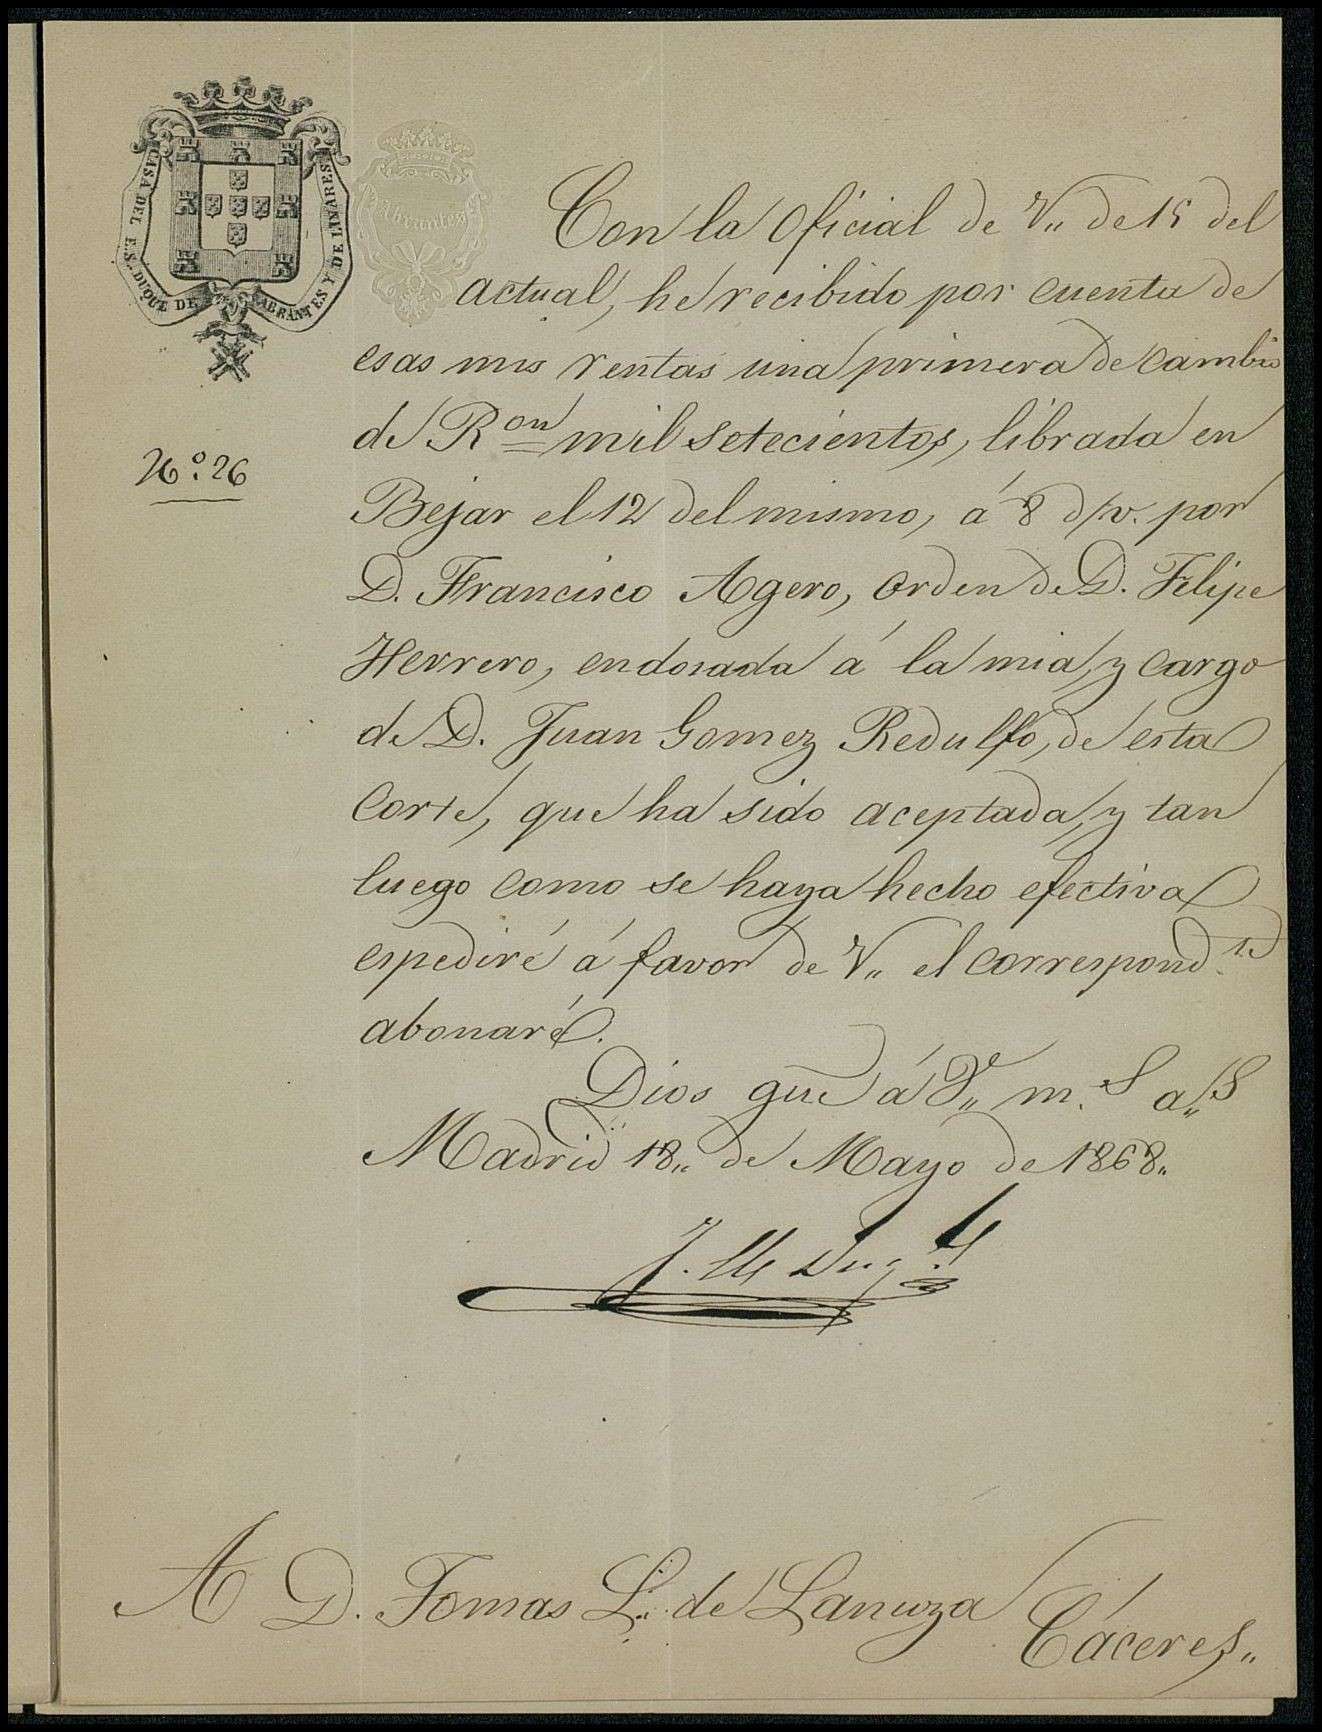 CASA DEL E.S. DUQUE DE ABRANTES Y DE LINARES
Con la oficial de V„ de 15 del
actual, he recibido por cuenta de
esas mis rentas una primera de cambio
de R.on mil setecientos, librada en
Nº. 26
Bejar el 12 del mismo, á 8 d/v. por
D. Francisco Agero, orden de D. Felipe
Herrero, endosada á la mia, y cargo
de D. Juan Gomez Redulfo, de esta
Corte, que ha sido aceptada, y tan
luego como se haya hecho efectiva
espediré á favor de V„ el correspond.te
abonaré.
Dios gue á V„ m.s a„s
Madrid 18„ de Mayo de 1868„
A D. Tomas L„ de Lanuza
Cáceres„